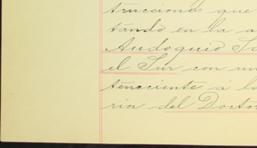 trucciono que
tando en la a
Audoquio Sa
el Sur con un
teneciente á lo
ria del Docto